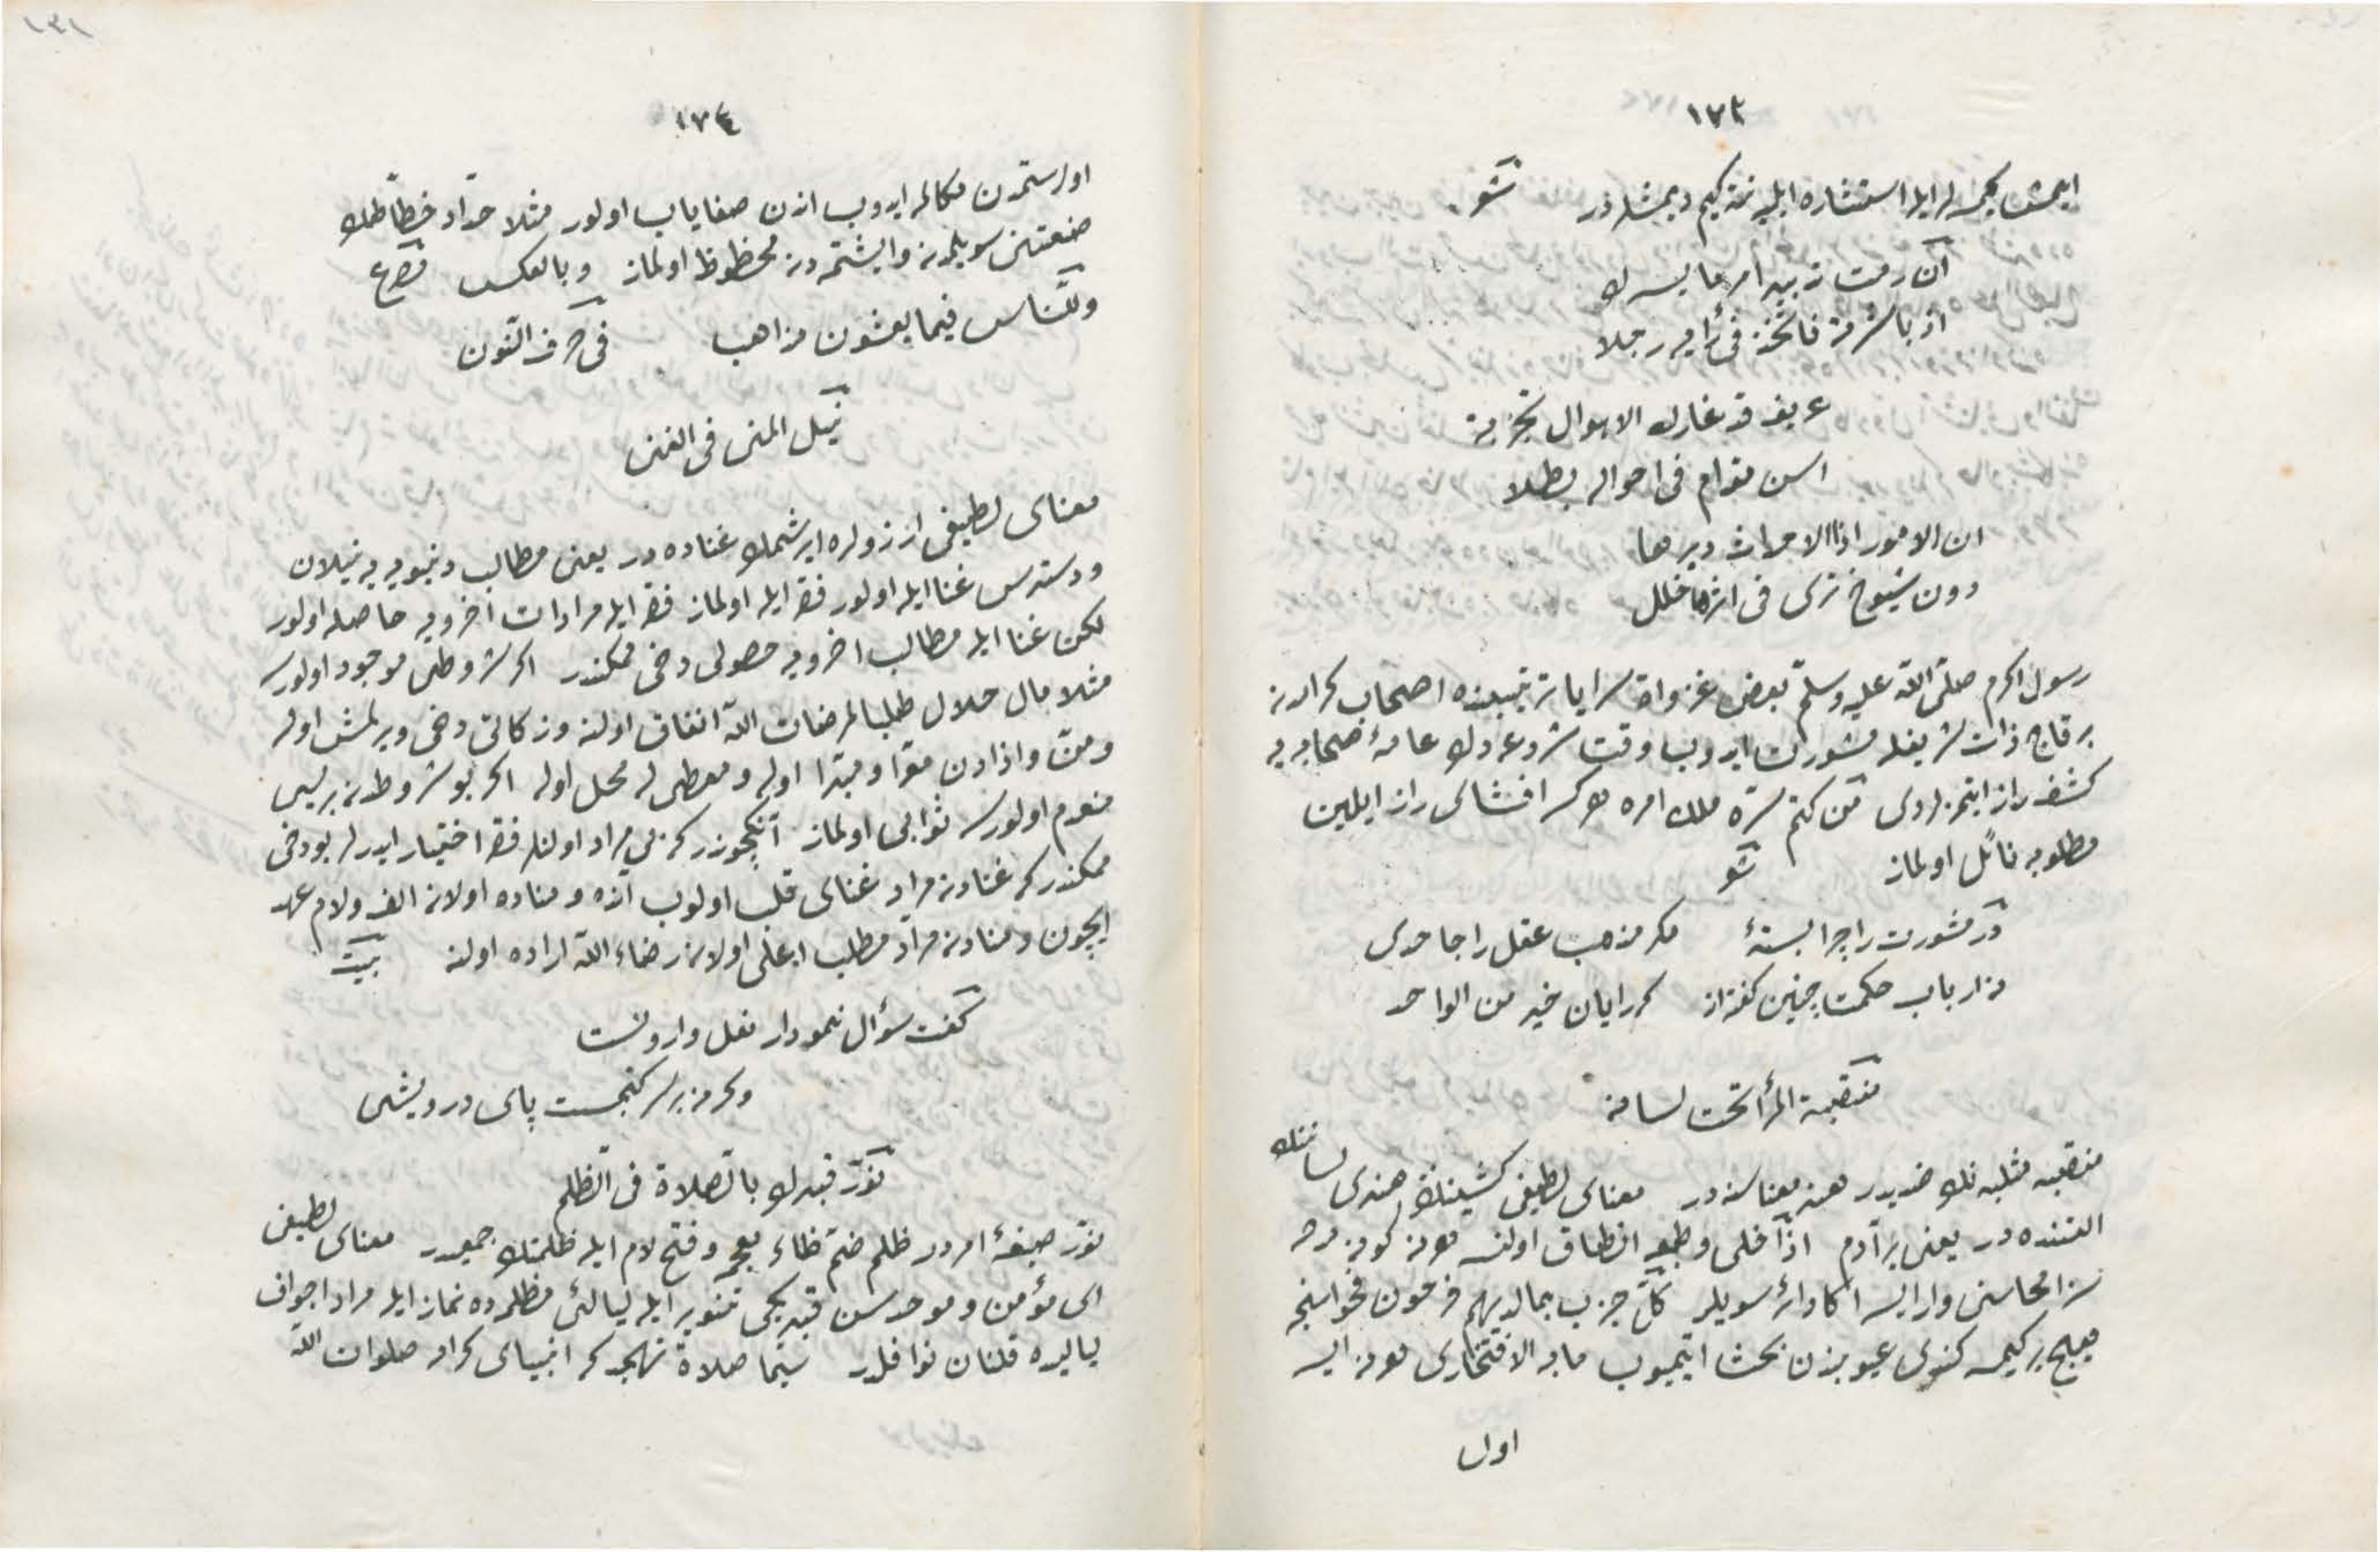 ١٧٣
ايتمش كيمسه لر ايله استشاره ايليه نته كيم ديمشلردر شعر
ان رمت تدبير امر ما يسرك
او باشرته فاتخذ فى رأيه رجلا
قد غارك الاهوال تجربة
اسن مقدام فى احواله بطلا
ان الامور اذا الاحداث دبرها
دون شيوخ ترى فى اثرها خلل
رسول اكرم صلّى الله عليه وسلّم بعض غزوات سرايا ترتيبنده اصحاب كرامدن
بر قاچ ذات شريفله مشورت ايدوب وقت شروعه دك عامهٔ صحابه يه
كشف راز ايتمزلردى من كتم سرّه ملك امره هر كم افشاى راز ايلمين
مطلوبه نائل اولماز شعر
در مشورت را چرا بستهٔ مكر مذهب عقل را جاحدى
نه ارباب حكمت چنين كفته اند كه رايان خير من الواحد
منقبة المرأ تحت لسانه
منقبه مثلبه نك ضديدر هنر معناسنه در معناى لطيفى كشينك هنرى لساننك
التنده در يعنى بر آدم اذا خلى وطبعه انطاق اولنسه هر نه كونه
محاسنى وار ايسه اكا دائر سويلر كلّ حزب بما لديهم فرحون فحواسنجه
هيچ بر كيمسه كندى عيوبندن بحث ايتميوب ما به الافتخارى هر نه ايسه
اول
١٧٤
اولرستمدن مكالمه ايدوب اندن صفاياب اولور مثلا حدّاد خطّاطلك
صنعتنى سويلمدن وايشتمه دن محظوظ اولماز وبالعكس مصرع
وللنّاس فيما يعشقون مذاهب فى حرف النّون
نيل المنى فى الغنى
معناى لطيفى ارزولره ايرشمك غناده در يعنى مطالب دنيويه يه نيلان
ودسترس غنا ايله اولور فقر ايله اولماز فقر ايله مرادات اخرويه حاصله اولور
لكن غنا ايله مطالب اخرويه حصولى دخى ممكندر اكر شروطى موجود اولورسه
مثلا مال حلال طلبا لمرضات الله انفاق اولنه وزكاتى دخى ويرلمش اوله
ومنّ واذادن معرّا ومبرّا اوله ومعطى له محل اوله اكر بو شروطدن بريسى
منعدم اولورسه ثوابى اولماز آنكچوندر كه بى مراد اولنلر فقر اختيار ايدرلر بو دخى
ممكندر كه غنادن مراد غناى قلب اولوب آنده ومناده اولان الف ولام عهد
ايچون ومنادن مراد مطلب اعلى اولان رضاء الله اراده اولنه بيت
كفت سؤال نمودار نعل وارونست
وكرنه بر سر كنجست پاى درويشى
نوّر قبرك بالصّلاة فى الظّلم
نوّر صيغهٔ امردر ظلم ضمّ ظاء معجمه وفتح لام ايله ظلمتك جمعيدر معناى لطيفى
اى مؤمن وموحد سن قبريكى تنوير ايله ليالئ مظلمه ده نماز ايله مراد اجواف
لياليده قلنان نوافلدر سيّما صلاة تهجد كه انبياى كرام صلوات الله